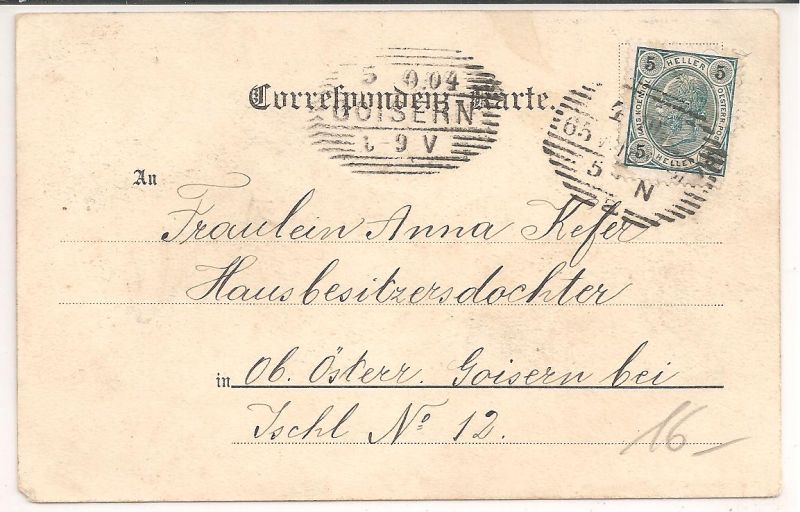 5 HELLER 5
KAIS. KOENIGL. OESTERR. POST
5 HELLER
Correspondenz-Karte.
5 9.04
GOISERN
1-9 V
65
5 N
An
Fraulein Anna Kefer
Hausbesitzersdochter
in Ob. Österr. Goisern bei
Ischl No 12.
16-